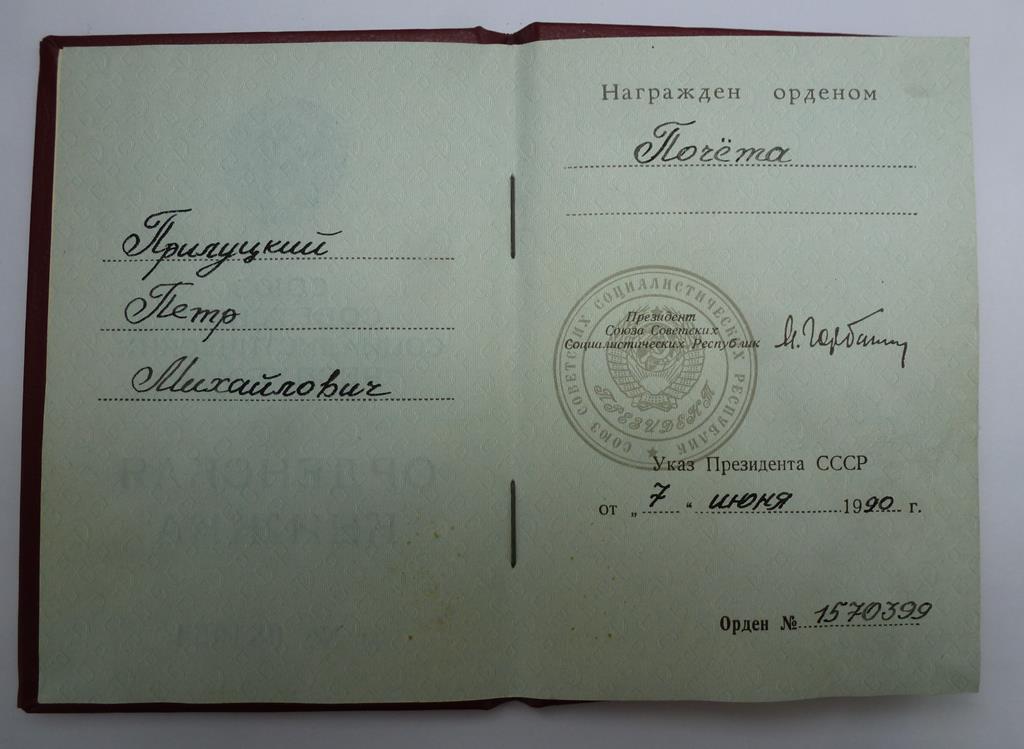 Прилуцкий
Петр
Михайлович
Награжден орденом
Почёта
Президент
Союза Советских
Социалистических Республик
М. Горбачев
СОЮЗ СОВЕТСКИХ СОЦИАЛИСТИЧЕСКИХ РЕСПУБЛИК
ПРЕЗИДЕНТ
Указ Президента СССР
от „7“ июня 1990 г.
Орден № 1570399